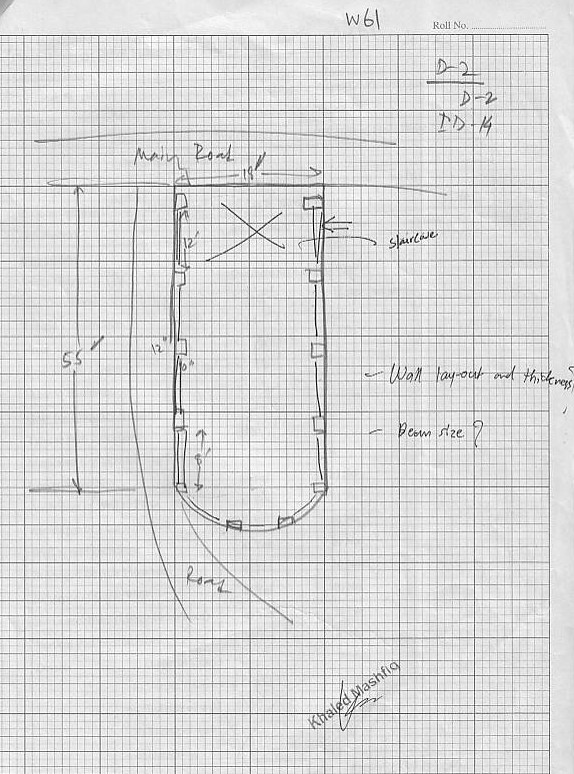 W61
Roll No.
D-2
D-2
ID-14
Main Road
18"
12'
staircase
55'
12"
10"
- Wall lay-out and thickness?
- Beam size?
8'
Road
Khaled Mashfiq